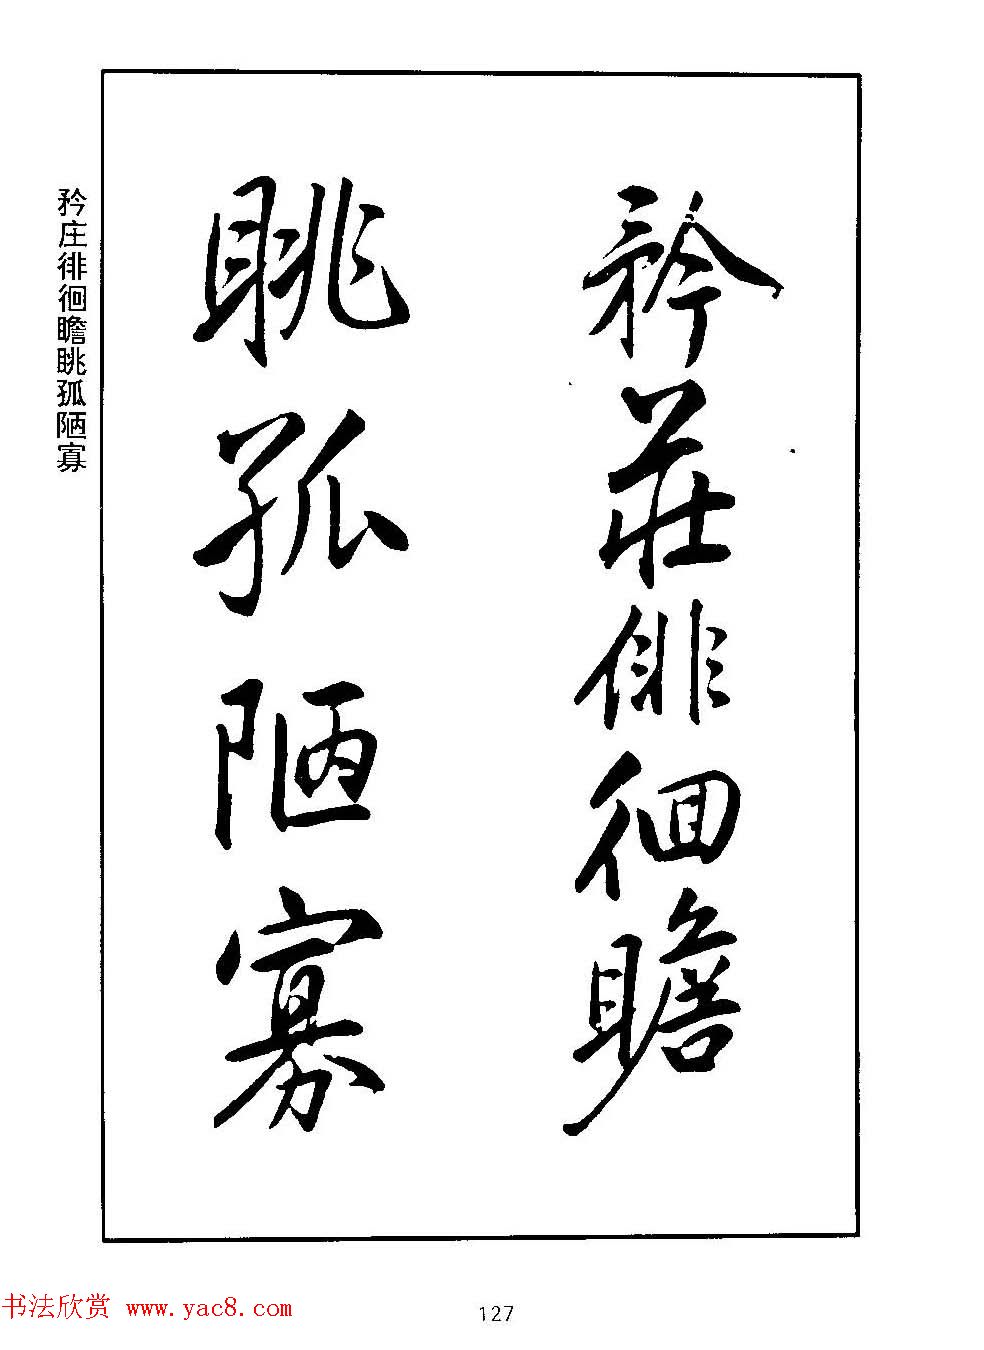 矜莊徘徊瞻
眺孤陋寡
矜庄徘徊瞻眺孤陋寡
书法欣赏 www.yac8.com
127